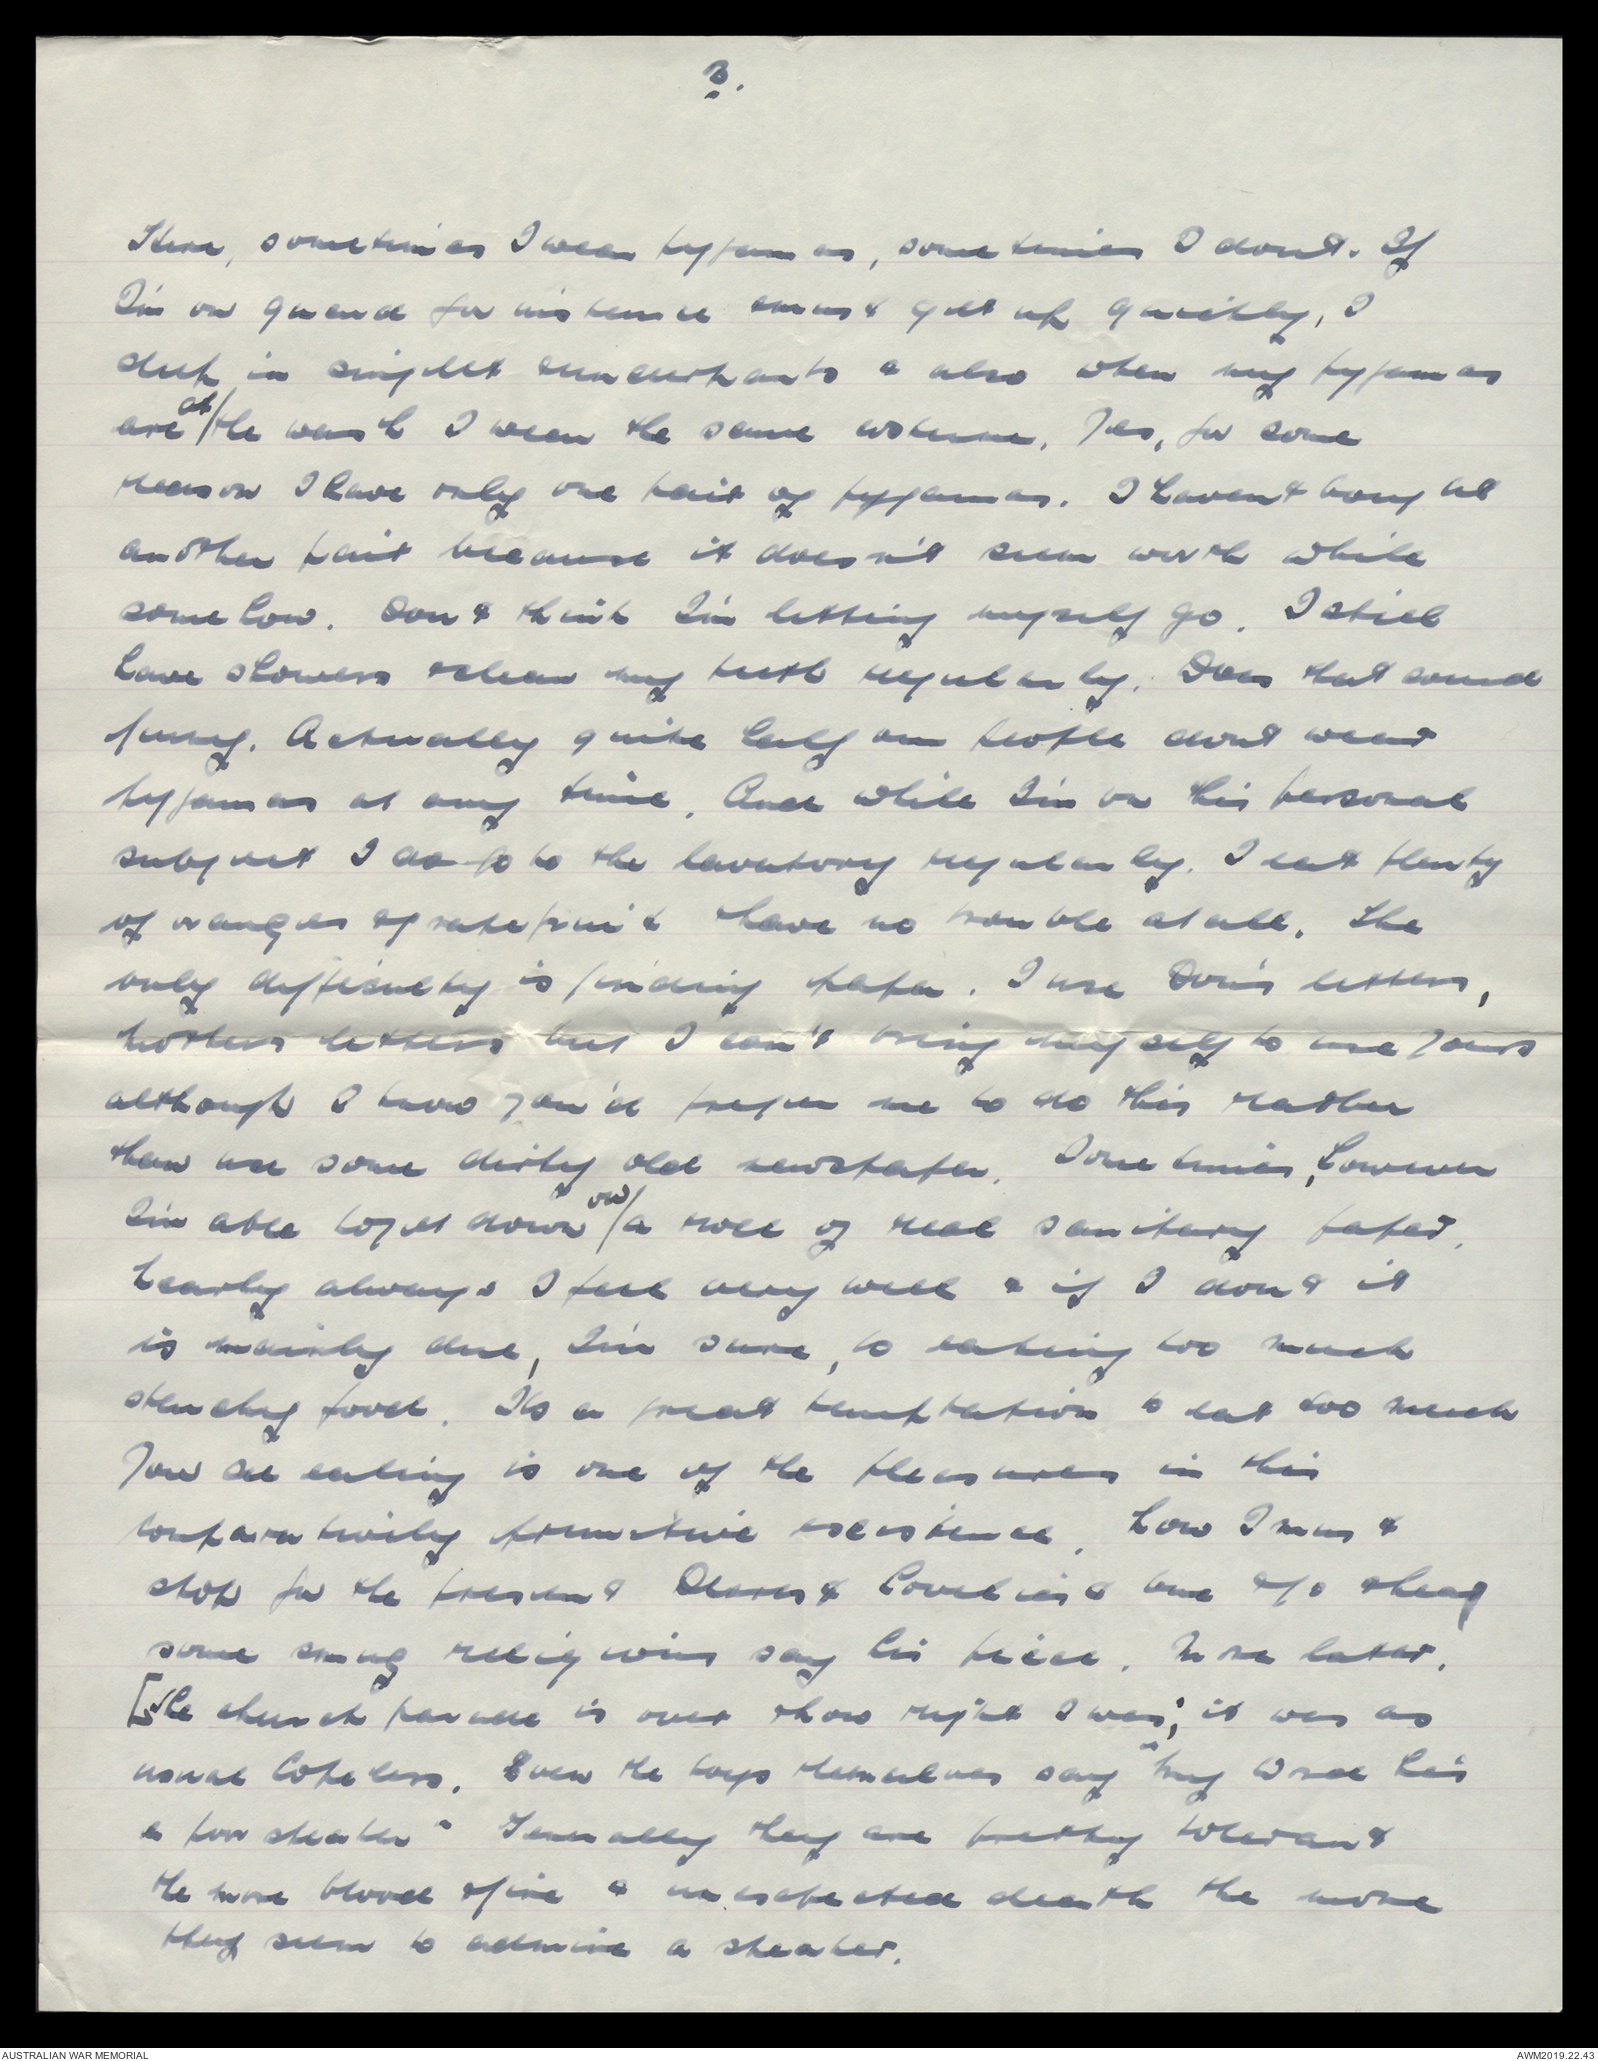 3.
Here, sometimes I wear pyjamas, sometimes I don't. If
I'm on guard for instance & must get up quickly, I
sleep in singlet & underpants & also when my pyjamas
are at/ the wash I wear the same costume. Yes, for some
reason I have only one pair of pyjamas. I haven't bought
another pair because it doesn't seem worth while
somehow. Don't think I'm letting myself go. I still
have showers & clean my teeth regularly. Does that sound
funny. Actually quite half our people don't wear
pyjamas at any time. And while I'm on this personal
subject I do go to the lavatory regularly. I eat plenty
of oranges & grapefruit & have no trouble at all. The
only difficulty is finding paper. I use Don's letters,
Mothers letters but I can't bring myself to use yours
although I know you'd prefer me to do this rather
than use some dirty old newspaper. Sometimes, however
I'm able to get down on/ a roll of real sanitary paper.
Nearly always I feel very well & if I don't it
is mainly due, I'm sure, to eating too much
starchy food. Its a great temptation to eat too much
You see eating is one of the pleasures in this
comparatively primitive existence. Now I must
stop for the present Dearest Loveliest One & go & hear
some smug religious say his piece. More later.
[The church parade is over & how right I was; it was as
usual hopeless. Even the boys themselves say "My word he's
a poor speaker" Generally they are pretty tolerant
the more blood & fire & unexpected death the more
they seem to admire a speaker.
AUSTRALIAN WAR MEMORIAL
AWM2019.22.43